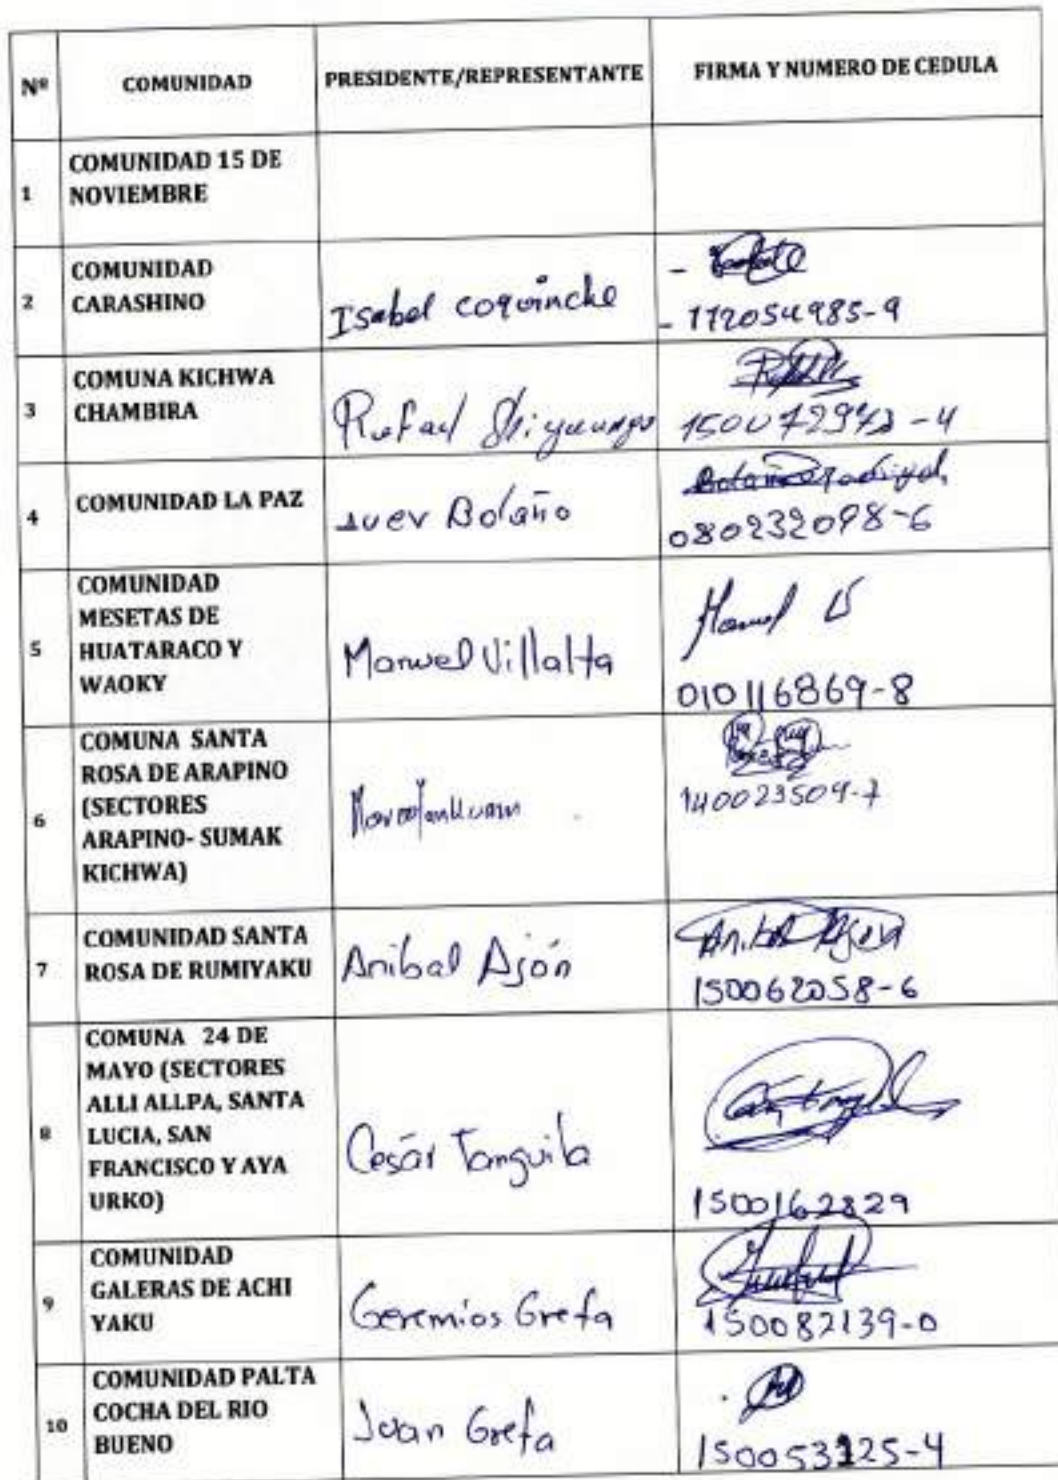 Nº COMUNIDAD PRESIDENTE/REPRESENTANTE FIRMA Y NUMERO DE CEDULA
1 COMUNIDAD 15 DE
NOVIEMBRE
2 COMUNIDAD
CARASHINO
Isabel Coquinche
- 172054985-9
3 COMUNA KICHWA
CHAMBIRA
Rafael
4 COMUNIDAD LA PAZ
Bolaño
080232098-6
5 COMUNIDAD
MESETAS DE
HUATARACO Y
WAOKY
Manuel Villalta
Manuel V
010116869-8
6 COMUNA SANTA
ROSA DE ARAPINO
(SECTORES
ARAPINO- SUMAK
KICHWA)
140023509-7
7 COMUNIDAD SANTA
ROSA DE RUMIYAKU
Anibal Ajón
Anibal Ajon
150062058-6
8 COMUNA 24 DE
MAYO (SECTORES
ALLI ALLPA, SANTA
LUCIA, SAN
FRANCISCO Y AYA
URKO)
César Tanguila
1500162829
9 COMUNIDAD
GALERAS DE ACHI
YAKU
Geremias Grefa
150082139-0
10 COMUNIDAD PALTA
COCHA DEL RIO
BUENO
Juan Grefa